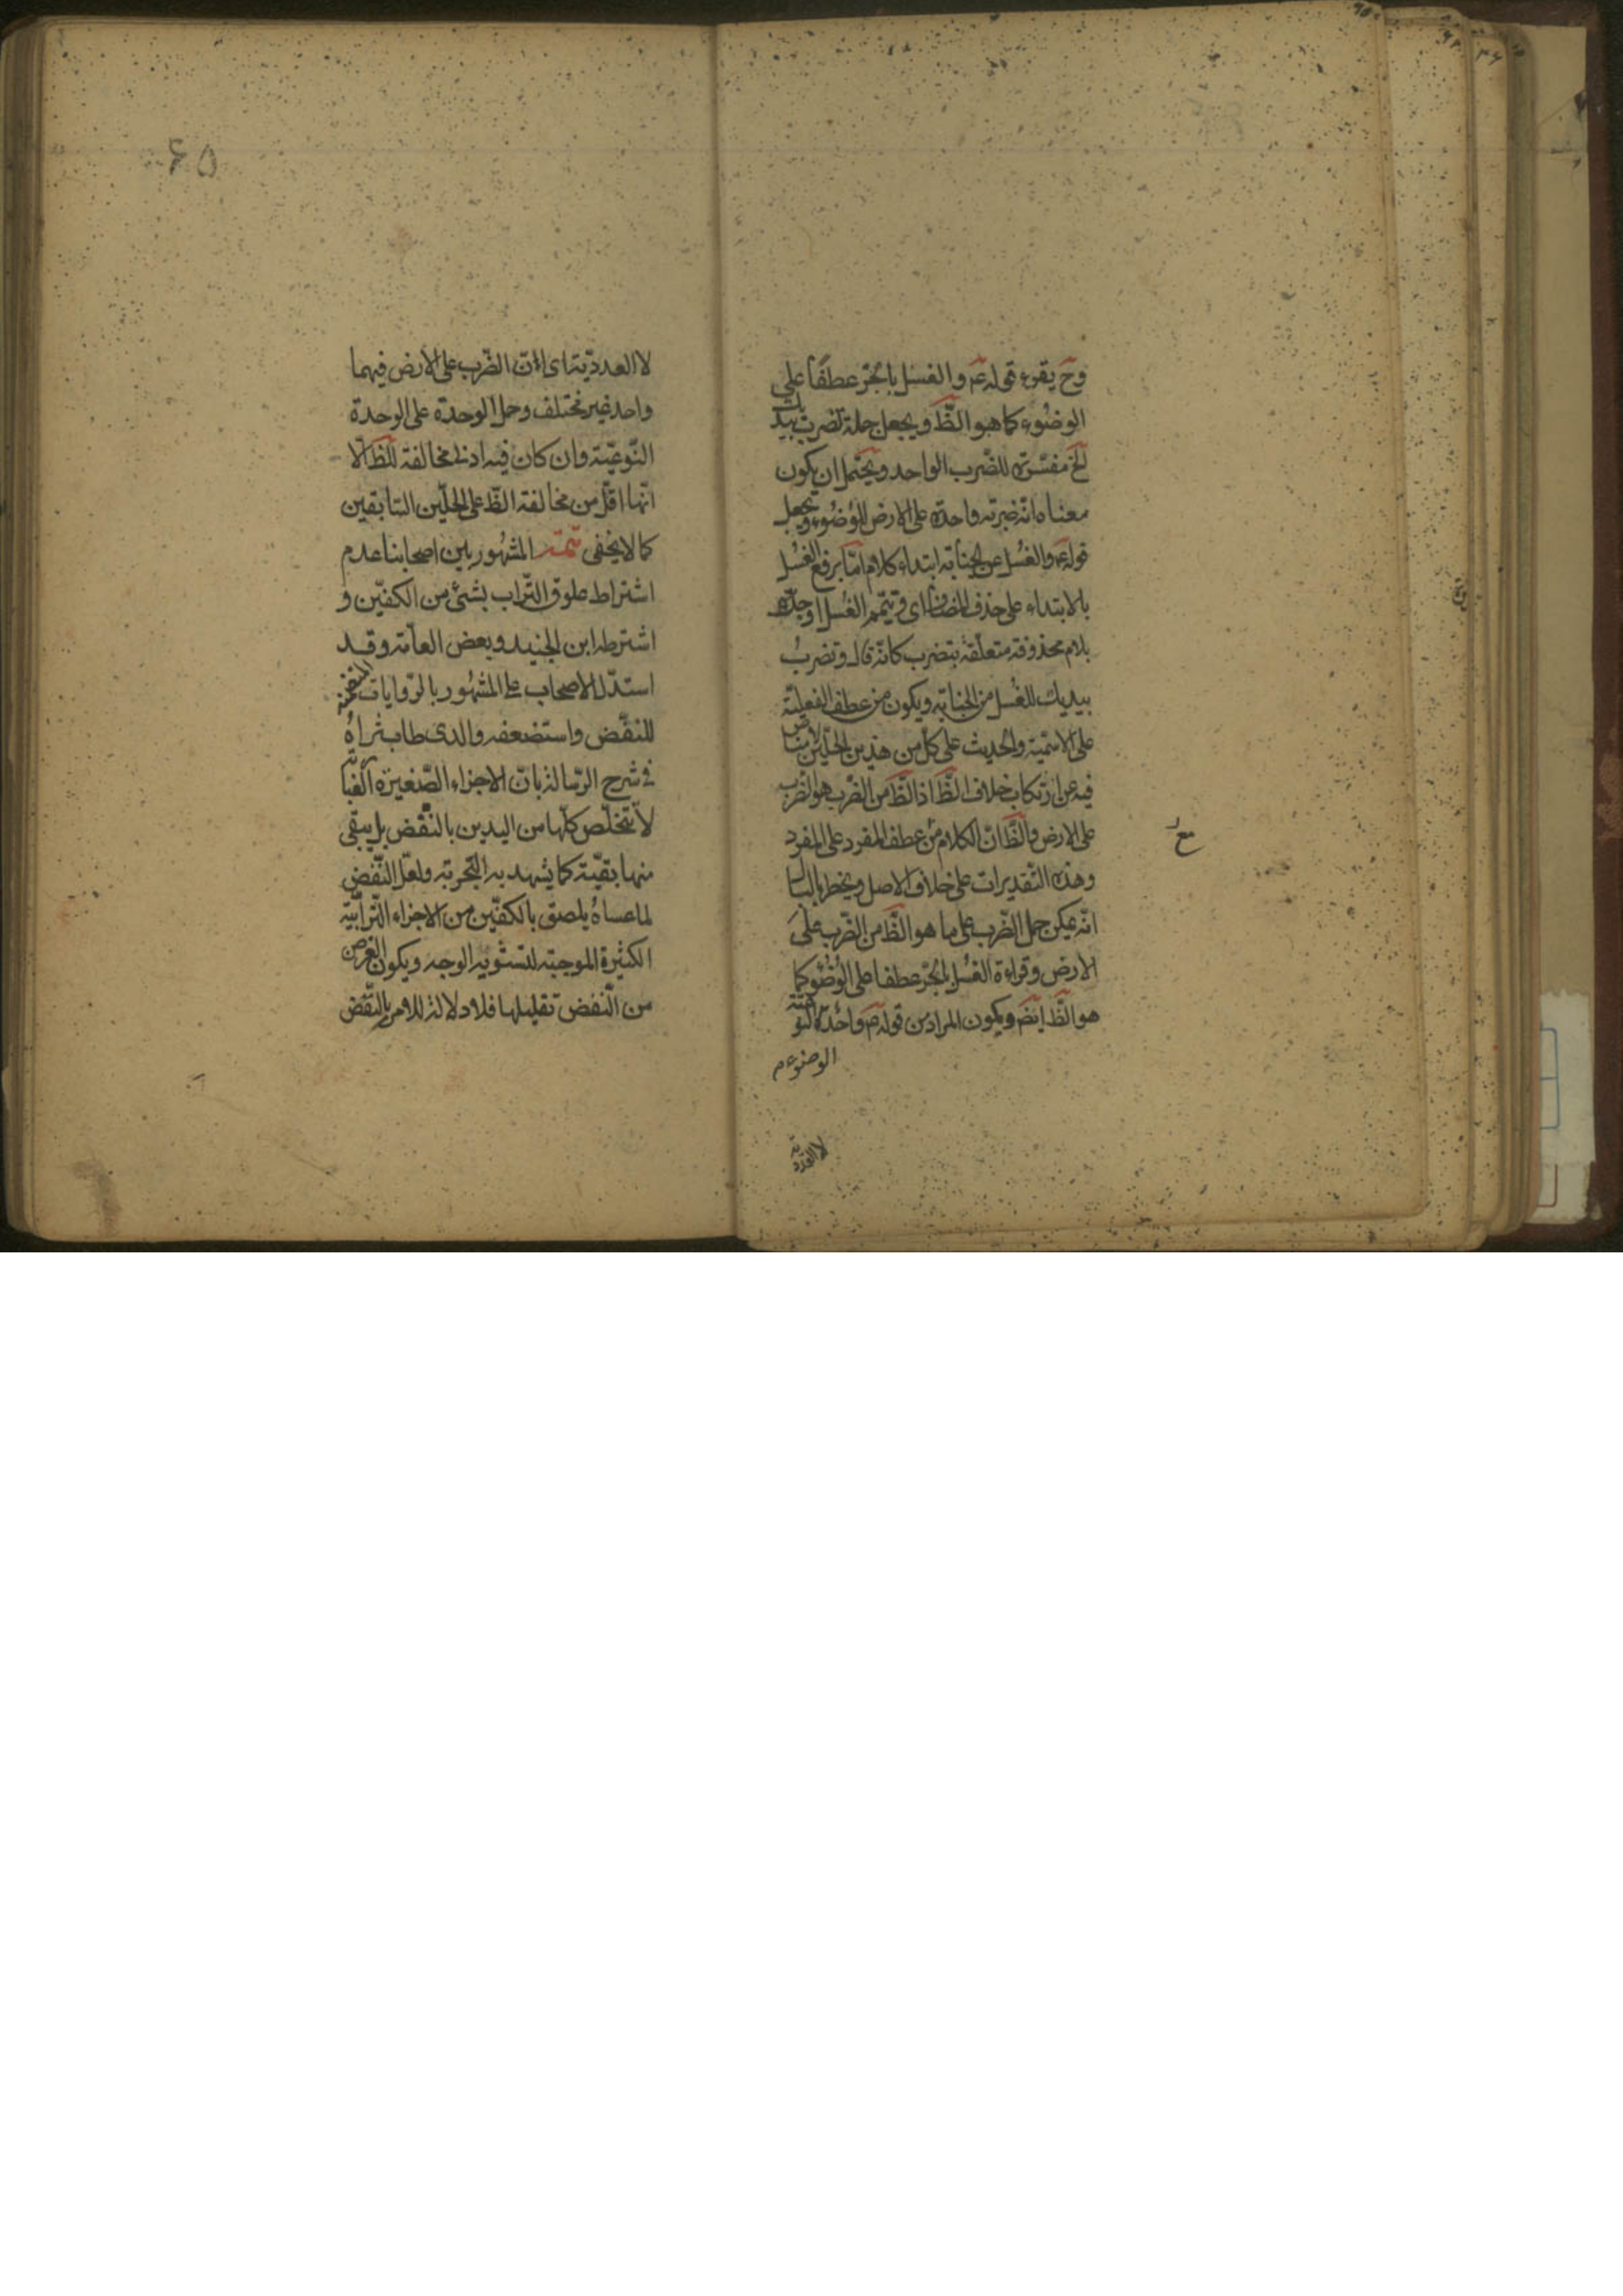 وح يقرء قوله عم والغسل بالجر عطفا على
الوضوء كما هو الظ ويجعل جملة تضرب بيديك
الخ مفسرة للضرب الواحد ويحتمل ان يكون
معناه انه ضربة واحدة على الارض للوضوء ويجعل
قوله عم والغسل عن الجنابة ابتداء كلام اما برفع الغسل
بالابتداء على حذف المضاف اى وتيمم الغسل او جره
بلام محذوفة متعلقة بتضرب كانه قال وتضرب
بيديك للغسل من الجنابة ويكون من عطف الفعلية
على الاسمية والحديث على كل من هذين الحملين لامناص
فيه عن ارتكاب خلاف الظ اذ الظ من الضرب هو الضرب
على الارض والظ ان الكلام من عطف المفرد على المفرد
وهذه التقديرات على خلاف الاصل ويخطر بالبال
انه يمكن حمل الضرب على ما هو الظ من الضرب على
الارض وقراءة الغسل بالجر عطفا على الوضوء كما
هو الظ ايض ويكون المراد من قوله عم واحدة النوعية
الوضوء م
لا العددية
۶۵
لا العددية اى ان الضرب على الارض فيهما
واحد غير مختلف وحمل الوحدة على الوحدة
النوعية وان كان فيه ادنى مخالفة للظ الا
انها اقل من مخالفة الظ على الحملين السابقين
كما لا يخفى تتمة المشهور بين اصحابنا عدم
اشتراط علوق التراب بشئ من الكفين و
اشترطه ابن الجنيد وبعض العامة وقد
استدل الاصحاب على المشهور بالروايات المتضمنة
للنفض واستضعفه والدى طاب ثراه
فى شرح الرسالة بان الاجزاء الصغيرة الغبارية
لا تتخلص كلها من اليدين بالنفض بل يبقى
منها بقية كما يشهد به التجربة ولعل النفض
لما عساه يلصق بالكفين من الاجزاء الترابية
الكثيرة الموجبة لتشويه الوجه ويكون الغرض
من النفض تقليلها فلا دلالة للامر بالنفض